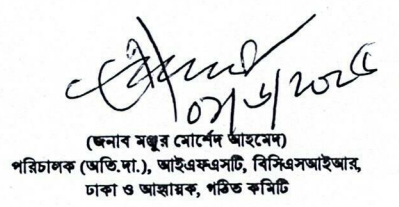 (জনাব মঞ্জুর মোর্শেদ আহমেদ)
পরিচালক (অতি.দা.), আইএফএসটি, বিসিএসআইআর,
ঢাকা ও আহ্বায়ক, গঠিত কমিটি